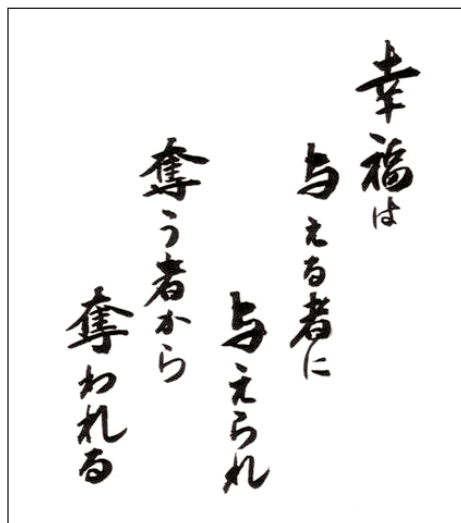 幸福は
与える者に
与えられ
奪う者から
奪われる